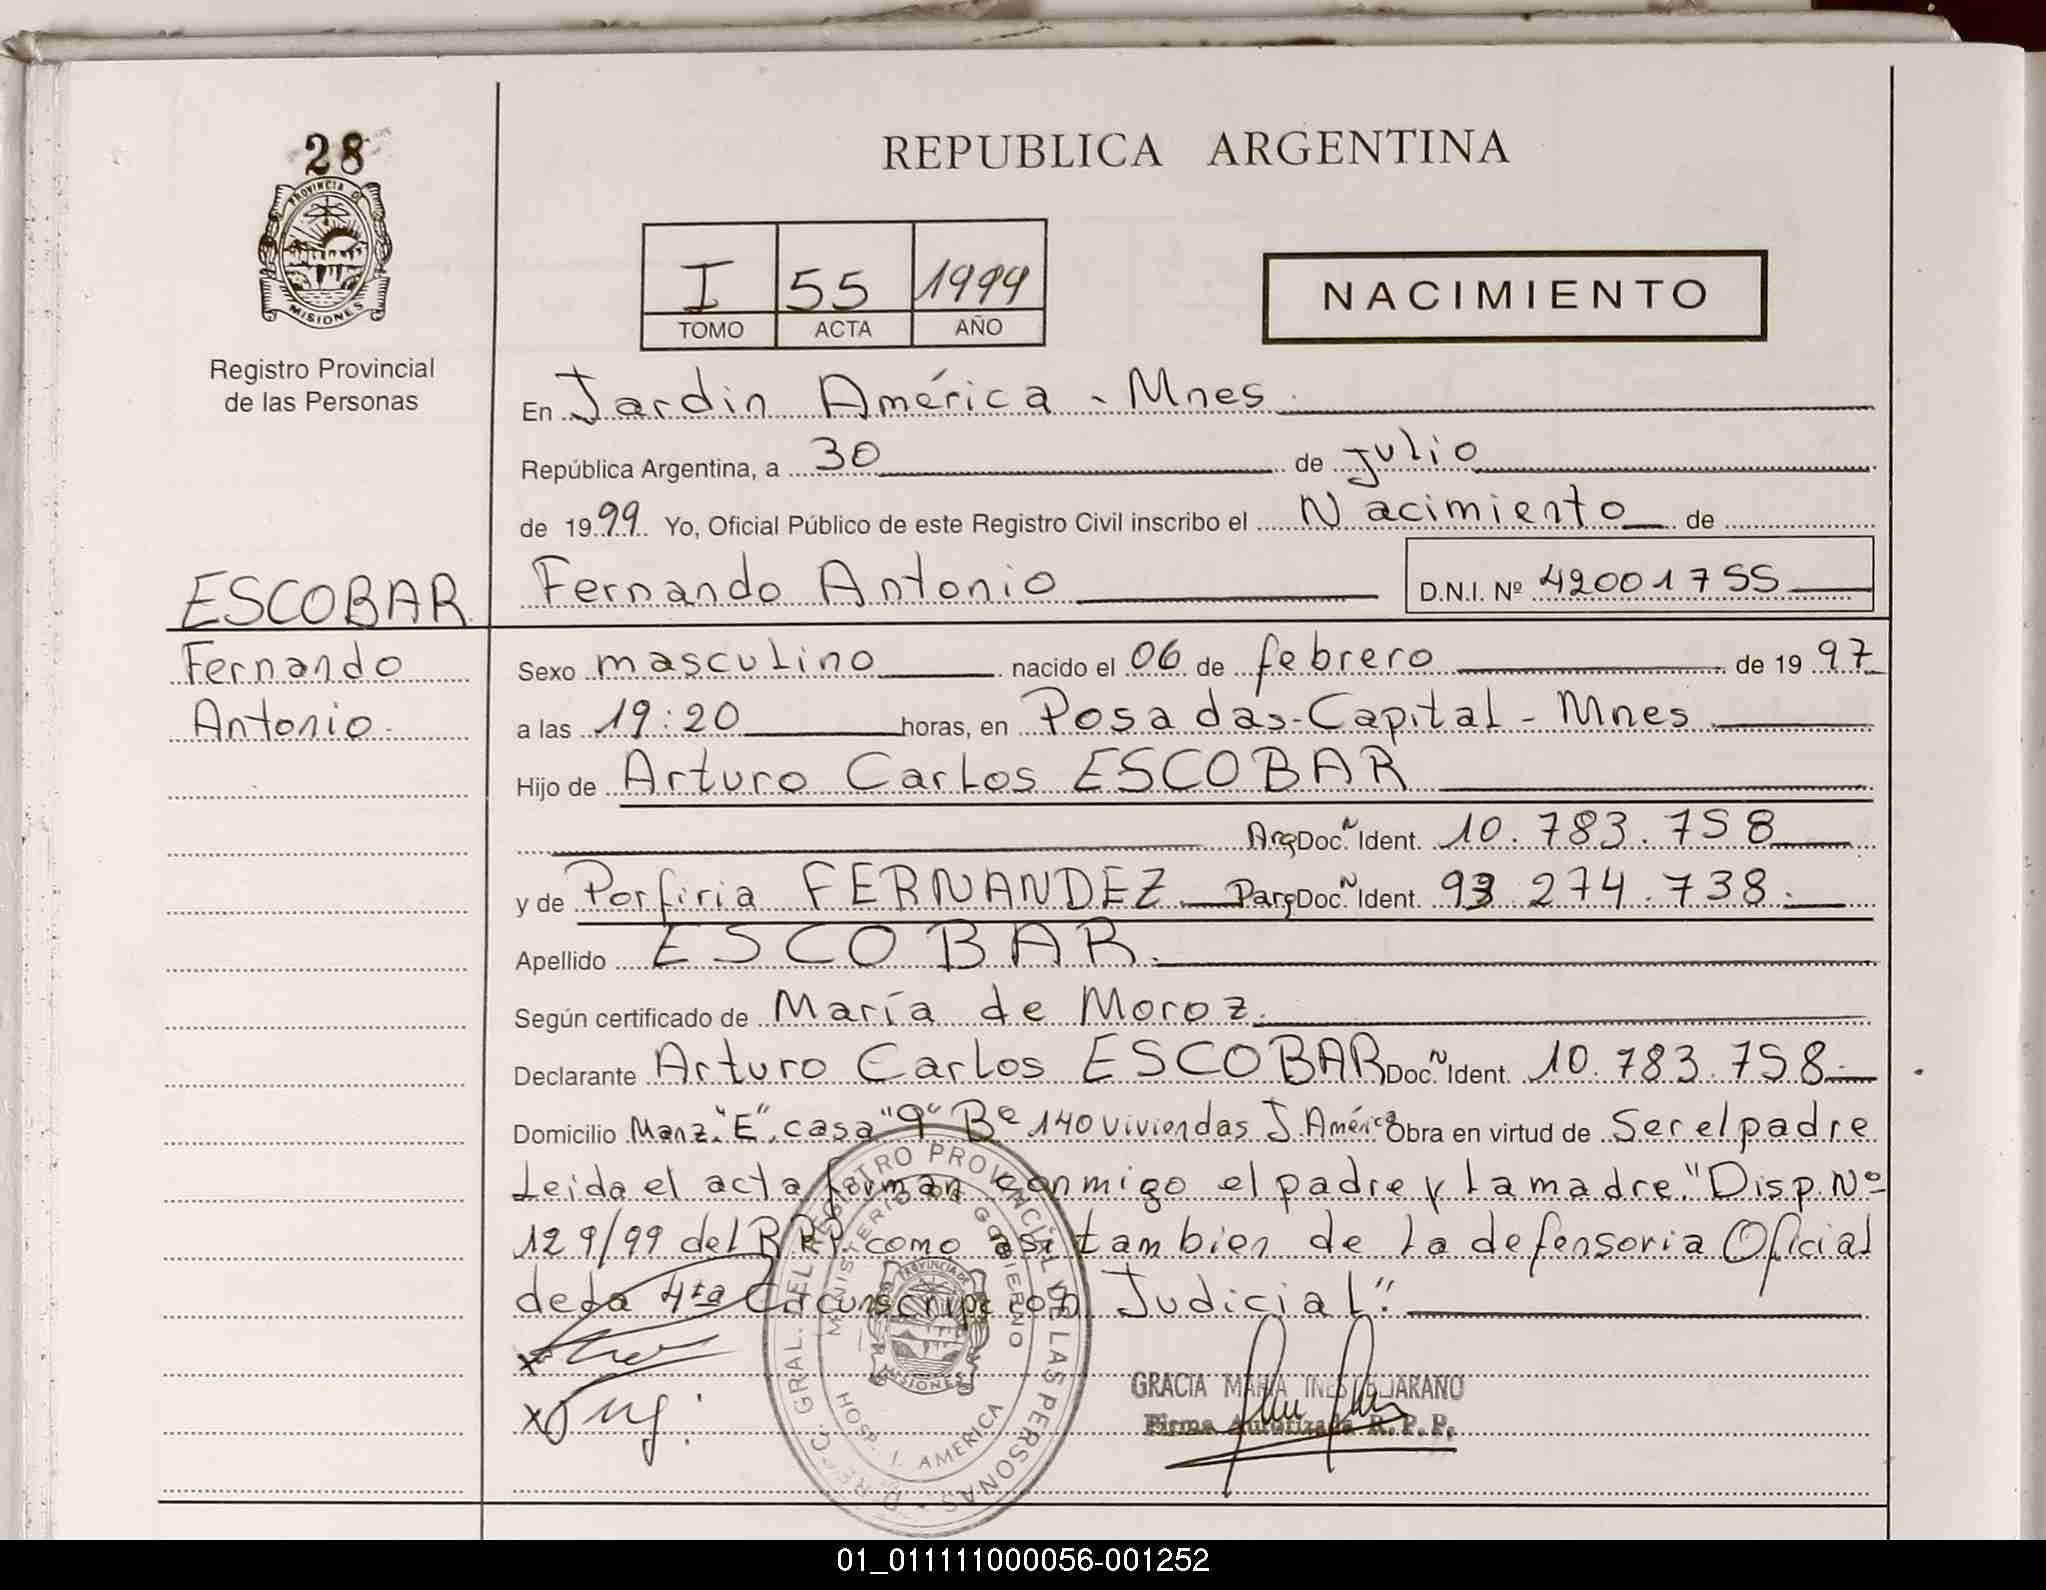 28
PROVINCIA DE
MISIONES
Registro Provincial
de las Personas
REPUBLICA ARGENTINA
I 55 1999
TOMO ACTA AÑO
NACIMIENTO
En Jardin América - Mnes.
República Argentina, a 30 de julio
de 1999. Yo, Oficial Público de este Registro Civil inscribo el Nacimiento de
ESCOBAR Fernando Antonio D.N.I. Nº 42001755
Fernando Sexo masculino nacido el 06 de febrero de 1997
Antonio. a las 19:20 horas, en Posadas-Capital - Mnes
Hijo de Arturo Carlos ESCOBAR
Arg Doc. N Ident. 10.783.758
y de Porfiria FERNANDEZ Parg Doc. N Ident. 93 274.738.
Apellido ESCOBAR.
Según certificado de María de Moroz.
Declarante Arturo Carlos ESCOBAR Doc. N Ident. 10.783.758.
Domicilio Manz. "E". casa "9" Bº 140 viviendas J. América Obra en virtud de Ser el padre
Leida el acta forman conmigo el padre y la madre. "Disp. Nº
129/99 del R.P.P. como asi tambien de la defensoria Oficial
de la 4ta Circunscripcion Judicial".
DIREC. GRAL. EL REGISTRO PROVINCIAL DE LAS PERSONAS
MINISTERIO DE GOBIERNO
PROVINCIA DE
MISIONES
HOSP. J. AMERICA
GRACIA MARIA INES BEJARANO
Firma Autorizada R.P.P.
01_011111000056-001252